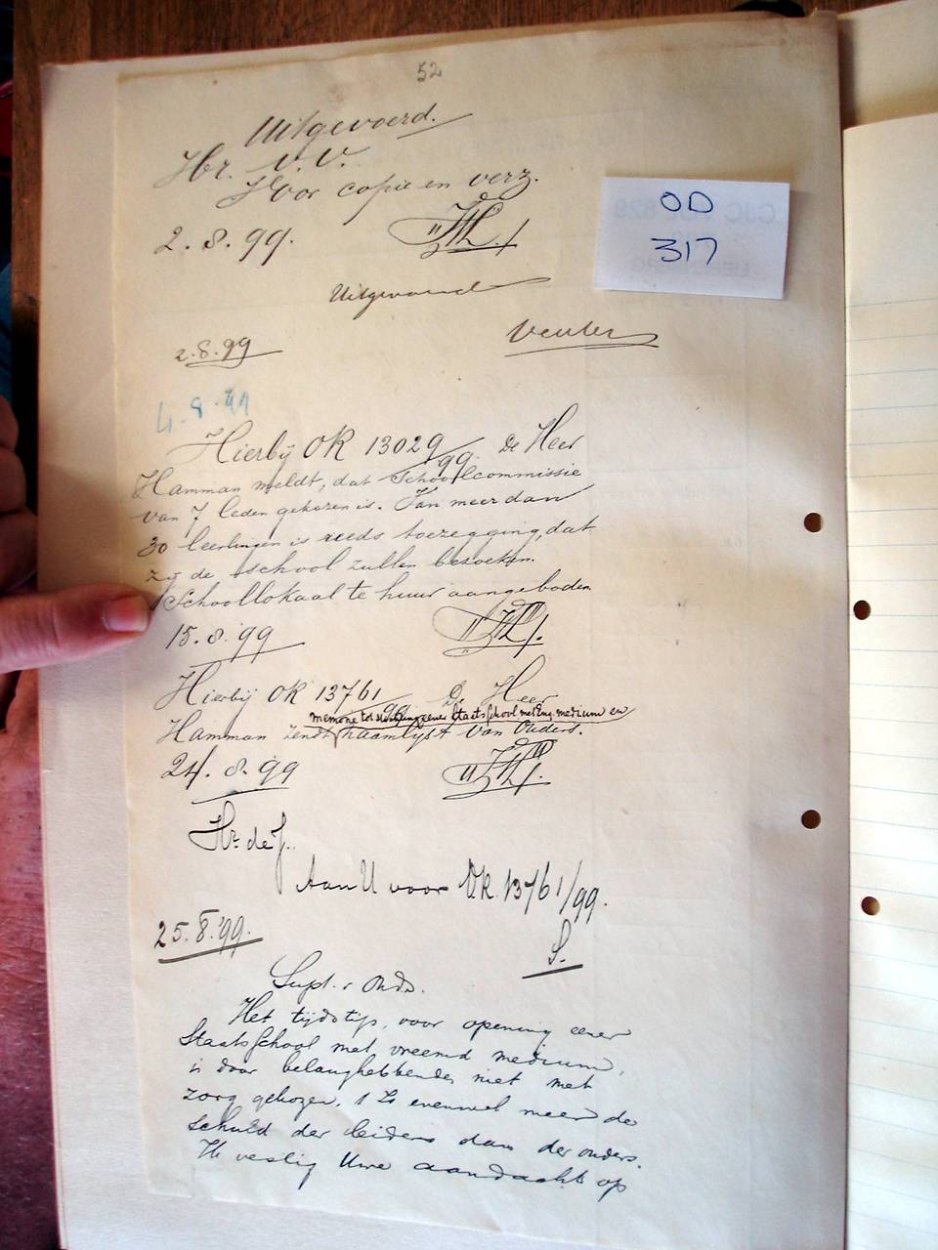 52
Uitgevoerd.
Hr. V. V.
Voor copie en verz.
2.8.99.
OD
317
Uitgevoerd
Venter
2.8.99
4.8.99
Hierbij OR 13029/99. De Heer
Hamman meldt, dat Schoolcommissie
van 7 leden gekozen is. Van meer dan
30 leerlingen is reeds toezegging, dat
zij de school zullen bezoeken.
Schoollokaal te huur aangeboden
15.8.99
Hierbij OR 13761/99 De Heer
memorie tot stichting eener Staatsschool met Eng. medium en
Hamman zendt naamlijst van Ouders.
24.8.99
Hr. de J.
Aan U voor OR. 13761/99.
25.8.'99.
S.
Supt. v Ond.
Het tijdstip, voor opening eener
Staatsschool met vreemd medium,
is door belanghebbenden niet met
zorg gekozen. 't Is evenwel meer de
schuld der leiders dan der ouders.
Ik vestig Uwe aandacht op